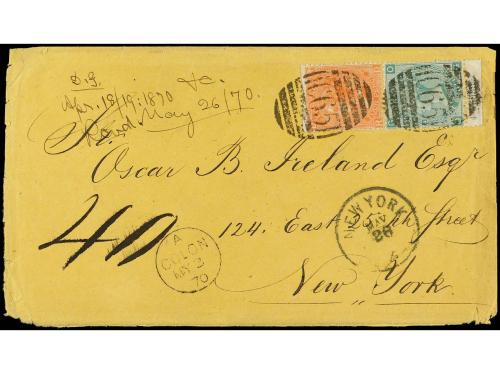 D.I. &c.
Apr. 18/19. 1870
Recd May 26/70.
C65
C65
Oscar B. Ireland Esqr
40
A
COLON
MY 2
70
NEW YORK
MAY
26
124. East Street
New York.